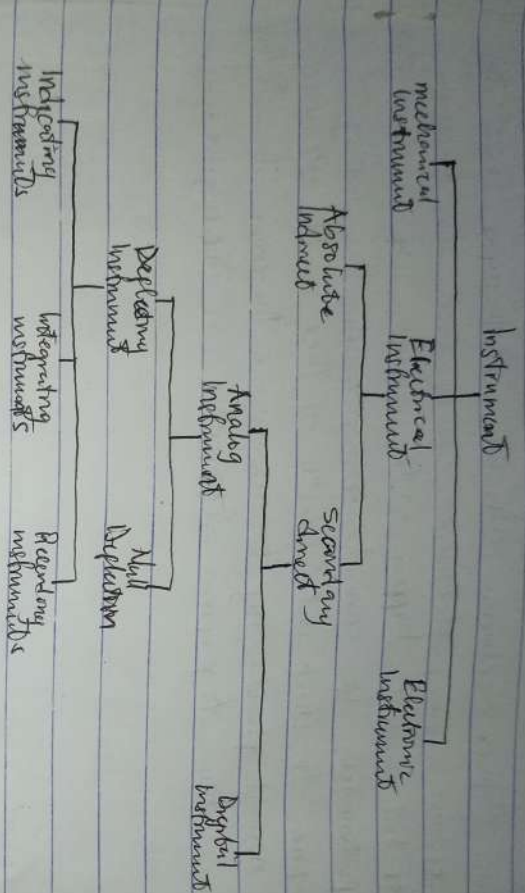 Instrument
mechanical
instrument
Electrical
Instrument
Electronic
instrument
Absolute
Secondary
Analog
Instrument
Digital
instrument
Deflecting
Instrument
Null
Deflection
Indicating
instruments
Integrating
instruments
Recording
instruments